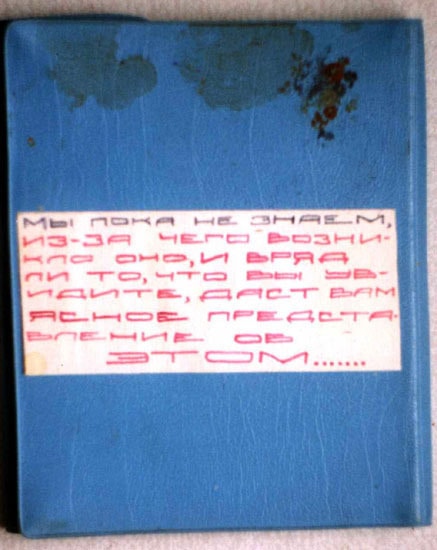 МЫ ПОКА НЕ ЗНАЕМ,
ИЗ-ЗА ЧЕГО ВОЗНИ-
КЛО ОНО, И ВРЯД
ЛИ ТО, ЧТО ВЫ УВ-
ИДИТЕ, ДАСТ ВАМ
ЯСНОЕ ПРЕДСТА-
ВЛЕНИЕ ОБ
ЭТОМ.......